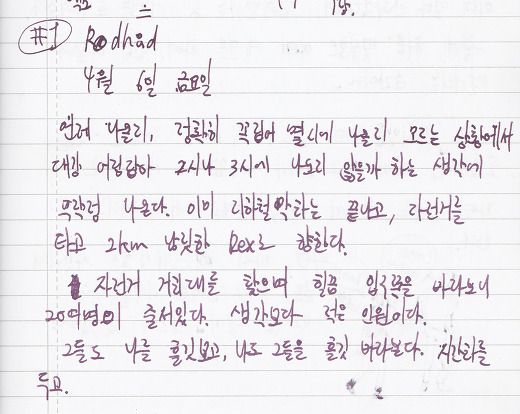 #1 Rødhåd
4월 6일 금요일
언제 나올지, 정확히 꼭집어 몇시에 나올지 모르는 상황에서
대강 어림잡아 2시나 3시에 나오지 않을까 하는 생각에
무작정 나온다. 이미 지하철 막차는 끝나고, 자전거를
타고 2km 남짓한 Rex로 향한다.
자전거 거치대를 찾으며 힐끔 입구쪽을 바라보니
20여명이 줄서있다. 생각보다 적은 인원이다.
그들도 나를 흘깃보고, 나도 그들을 흘깃 바라본다. 시간차를
두고.